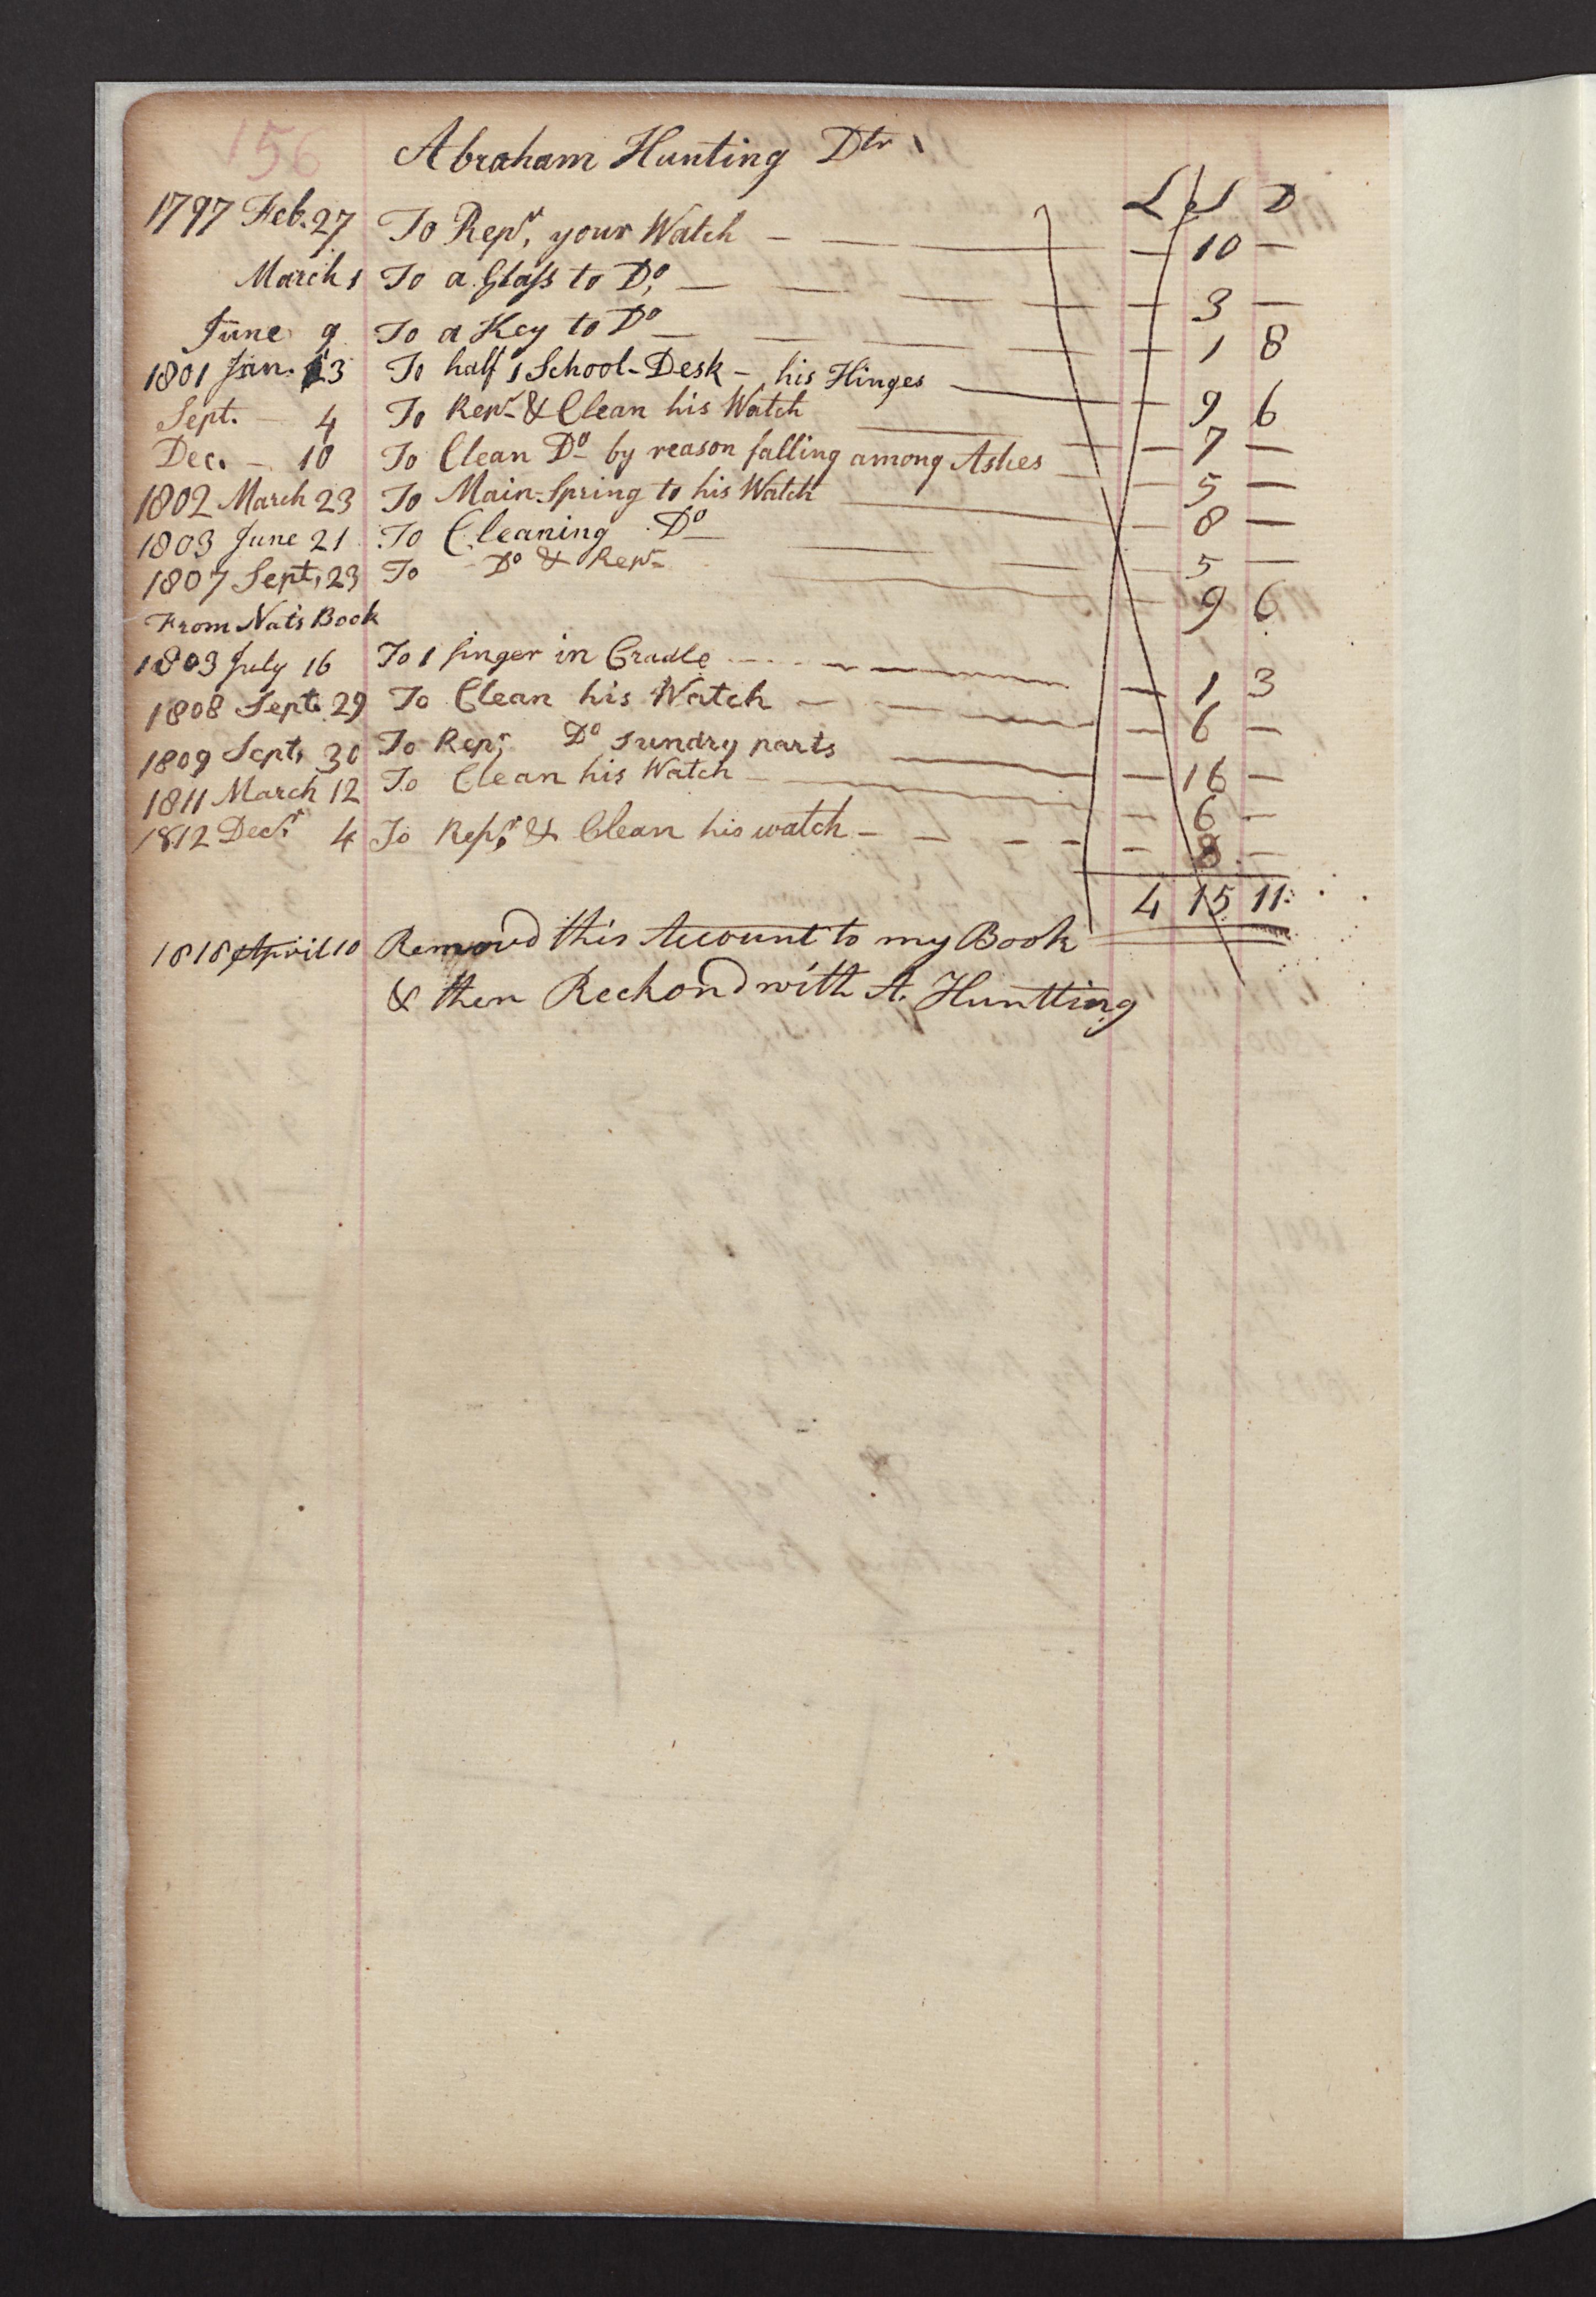 156
Abraham Hunting Dtr
L S D
1797 Feb. 27 To Repr. your Watch — — — — 10 —
March 1 To a Glass to Do, — — — — — 3 —
June 9 To a Key to Do — — — — — 1 8
1801 Jan. 13 To half 1 School-Desk - his Hinges — — 9 6
Sept. — 4 To Repr & Clean his Watch — — — 7 —
Dec. — 10 To Clean Do by reason falling among Ashes — — 5 —
1802 March 23 To Main-Spring to his Watch — — 8 —
1803 June 21 To Cleaning Do — — — 5 —
1807 Sept. 23 To Do & Repr — — 9 6
From Nat's Book
1803 July 16 To 1 finger in Cradle — — — 1 3
1808 Sept. 29 To Clean his Watch — — — — 6 —
1809 Sept. 30 To Repr, Do sundry parts — — 16 —
1811 March 12 To Clean his Watch — — — 6 —
1812 Decr. 4 To Repr, & Clean his watch — — — — — 8 —
4 15 11
1818 April 10 Removd this Account to my Book
& then Reckond with A. Huntting